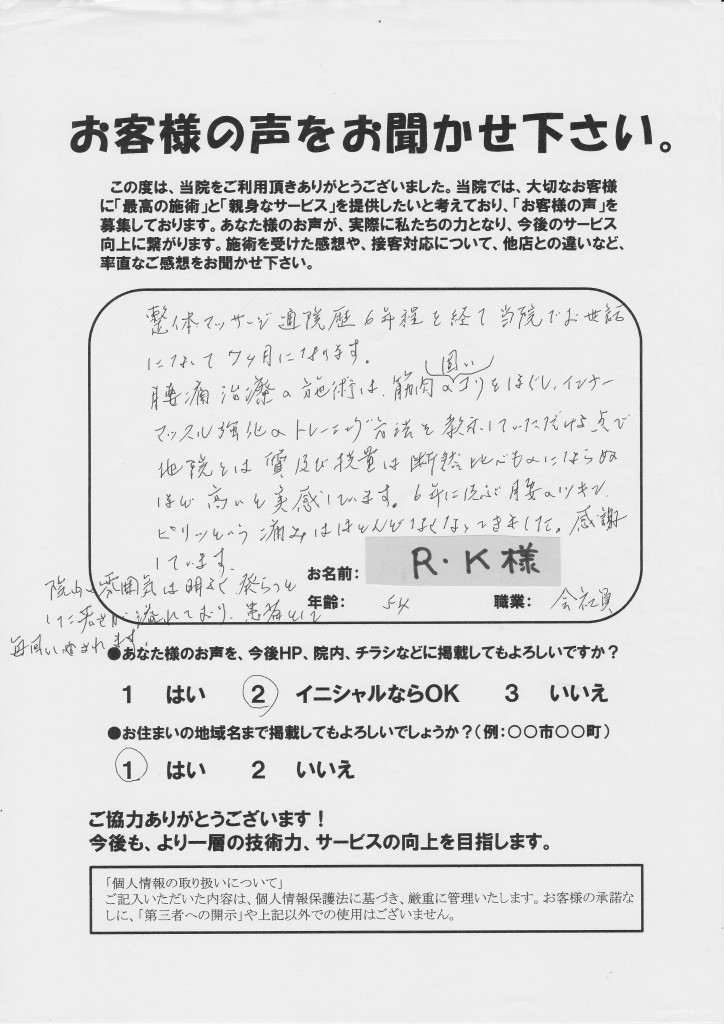 お客様の声をお聞かせ下さい。
この度は、当院をご利用頂きありがとうございました。当院では、大切なお客様
に「最高の施術」と「親身なサービス」を提供したいと考えており、「お客様の声」を
募集しております。あなた様のお声が、実際に私たちの力となり、今後のサービス
向上に繋がります。施術を受けた感想や、接客対応について、他店との違いなど、
率直なご感想をお聞かせ下さい。
整体マッサージ通院歴6年程を経て当院でお世話
になって7ヶ月になります。
腰痛治療の施術は、筋肉の固いコリをほぐし、インナー
マッスル強化のトレーニング方法を教示していただける点で
他院とは質及び技量は断然比べものにならぬ
ほど高いと実感しています。6年に及ぶ腰のツキン、
ピリッという痛みはほとんどなくなってきました。感謝
しています。
お名前: R・K様
年齢: 54 職業: 会社員
院内の雰囲気は明るく溌らつと
した若さが溢れており、患者として
毎回いやされます。
●あなた様のお声を、今後HP、院内、チラシなどに掲載してもよろしいですか？
1 はい 2 イニシャルならOK 3 いいえ
●お住まいの地域名まで掲載してもよろしいでしょうか？(例：〇〇市〇〇町)
1 はい 2 いいえ
ご協力ありがとうございます！
今後も、より一層の技術力、サービスの向上を目指します。
「個人情報の取り扱いについて」
ご記入いただいた内容は、個人情報保護法に基づき、厳重に管理いたします。お客様の承諾な
しに、「第三者への開示」や上記以外での使用はございません。